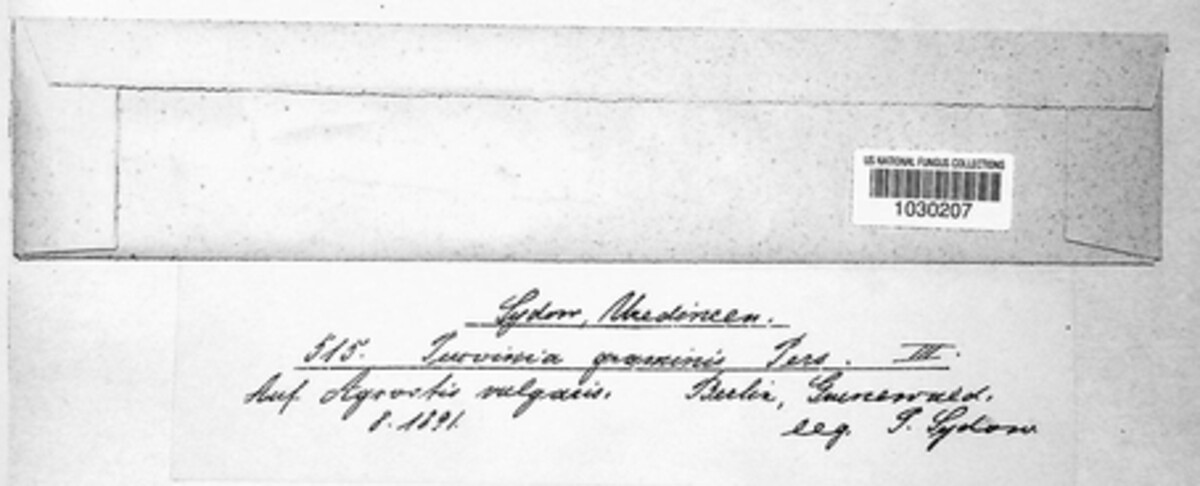 US NATIONAL FUNGUS COLLECTIONS
1030207
Sydow, Uredineen.
515. Puccinia graminis Pers. III.
Auf Agrostis vulgaris. Berlin, Grunewald.
8. 1891. leg. P. Sydow